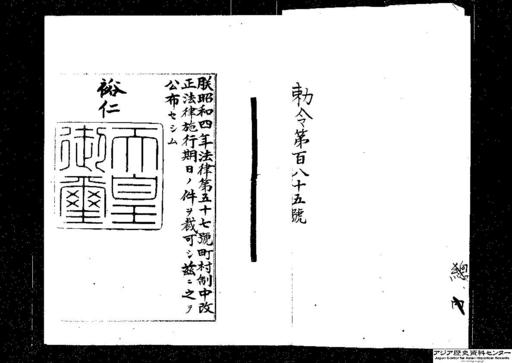 勅令第百八十五號
總、内
朕昭和四年法律第五十七號町村制中改
正法律施行期日ノ件ヲ裁可シ茲ニ之ヲ
公布セシム
裕仁
天皇
御璽
アジア歴史資料センター
Japan Center for Asian Historical Records